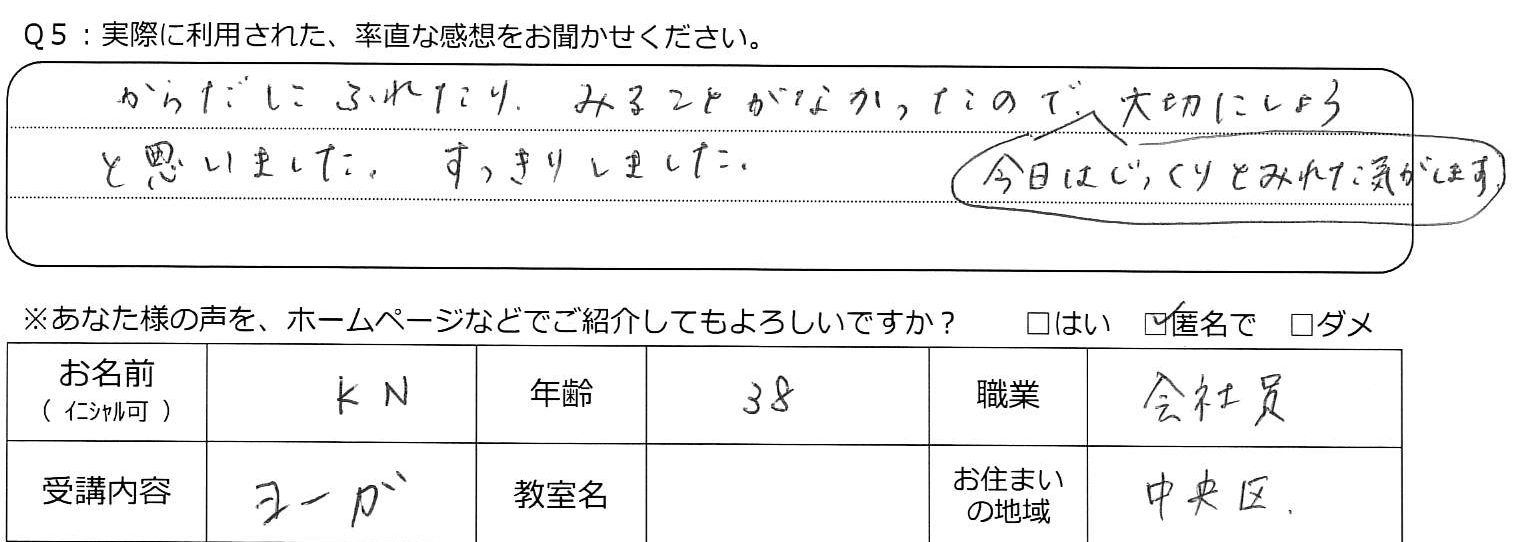 Q5：実際に利用された、率直な感想をお聞かせください。
からだにふれたり、みることがなかったので、大切にしよう
と思いました。すっきりしました。
今日はじっくりとみれた気がします。
※あなた様の声を、ホームページなどでご紹介してもよろしいですか？ □はい ☑匿名で □ダメ
お名前（イニシャル可） KN 年齢 38 職業 会社員
受講内容 ヨーガ 教室名 お住まいの地域 中央区.